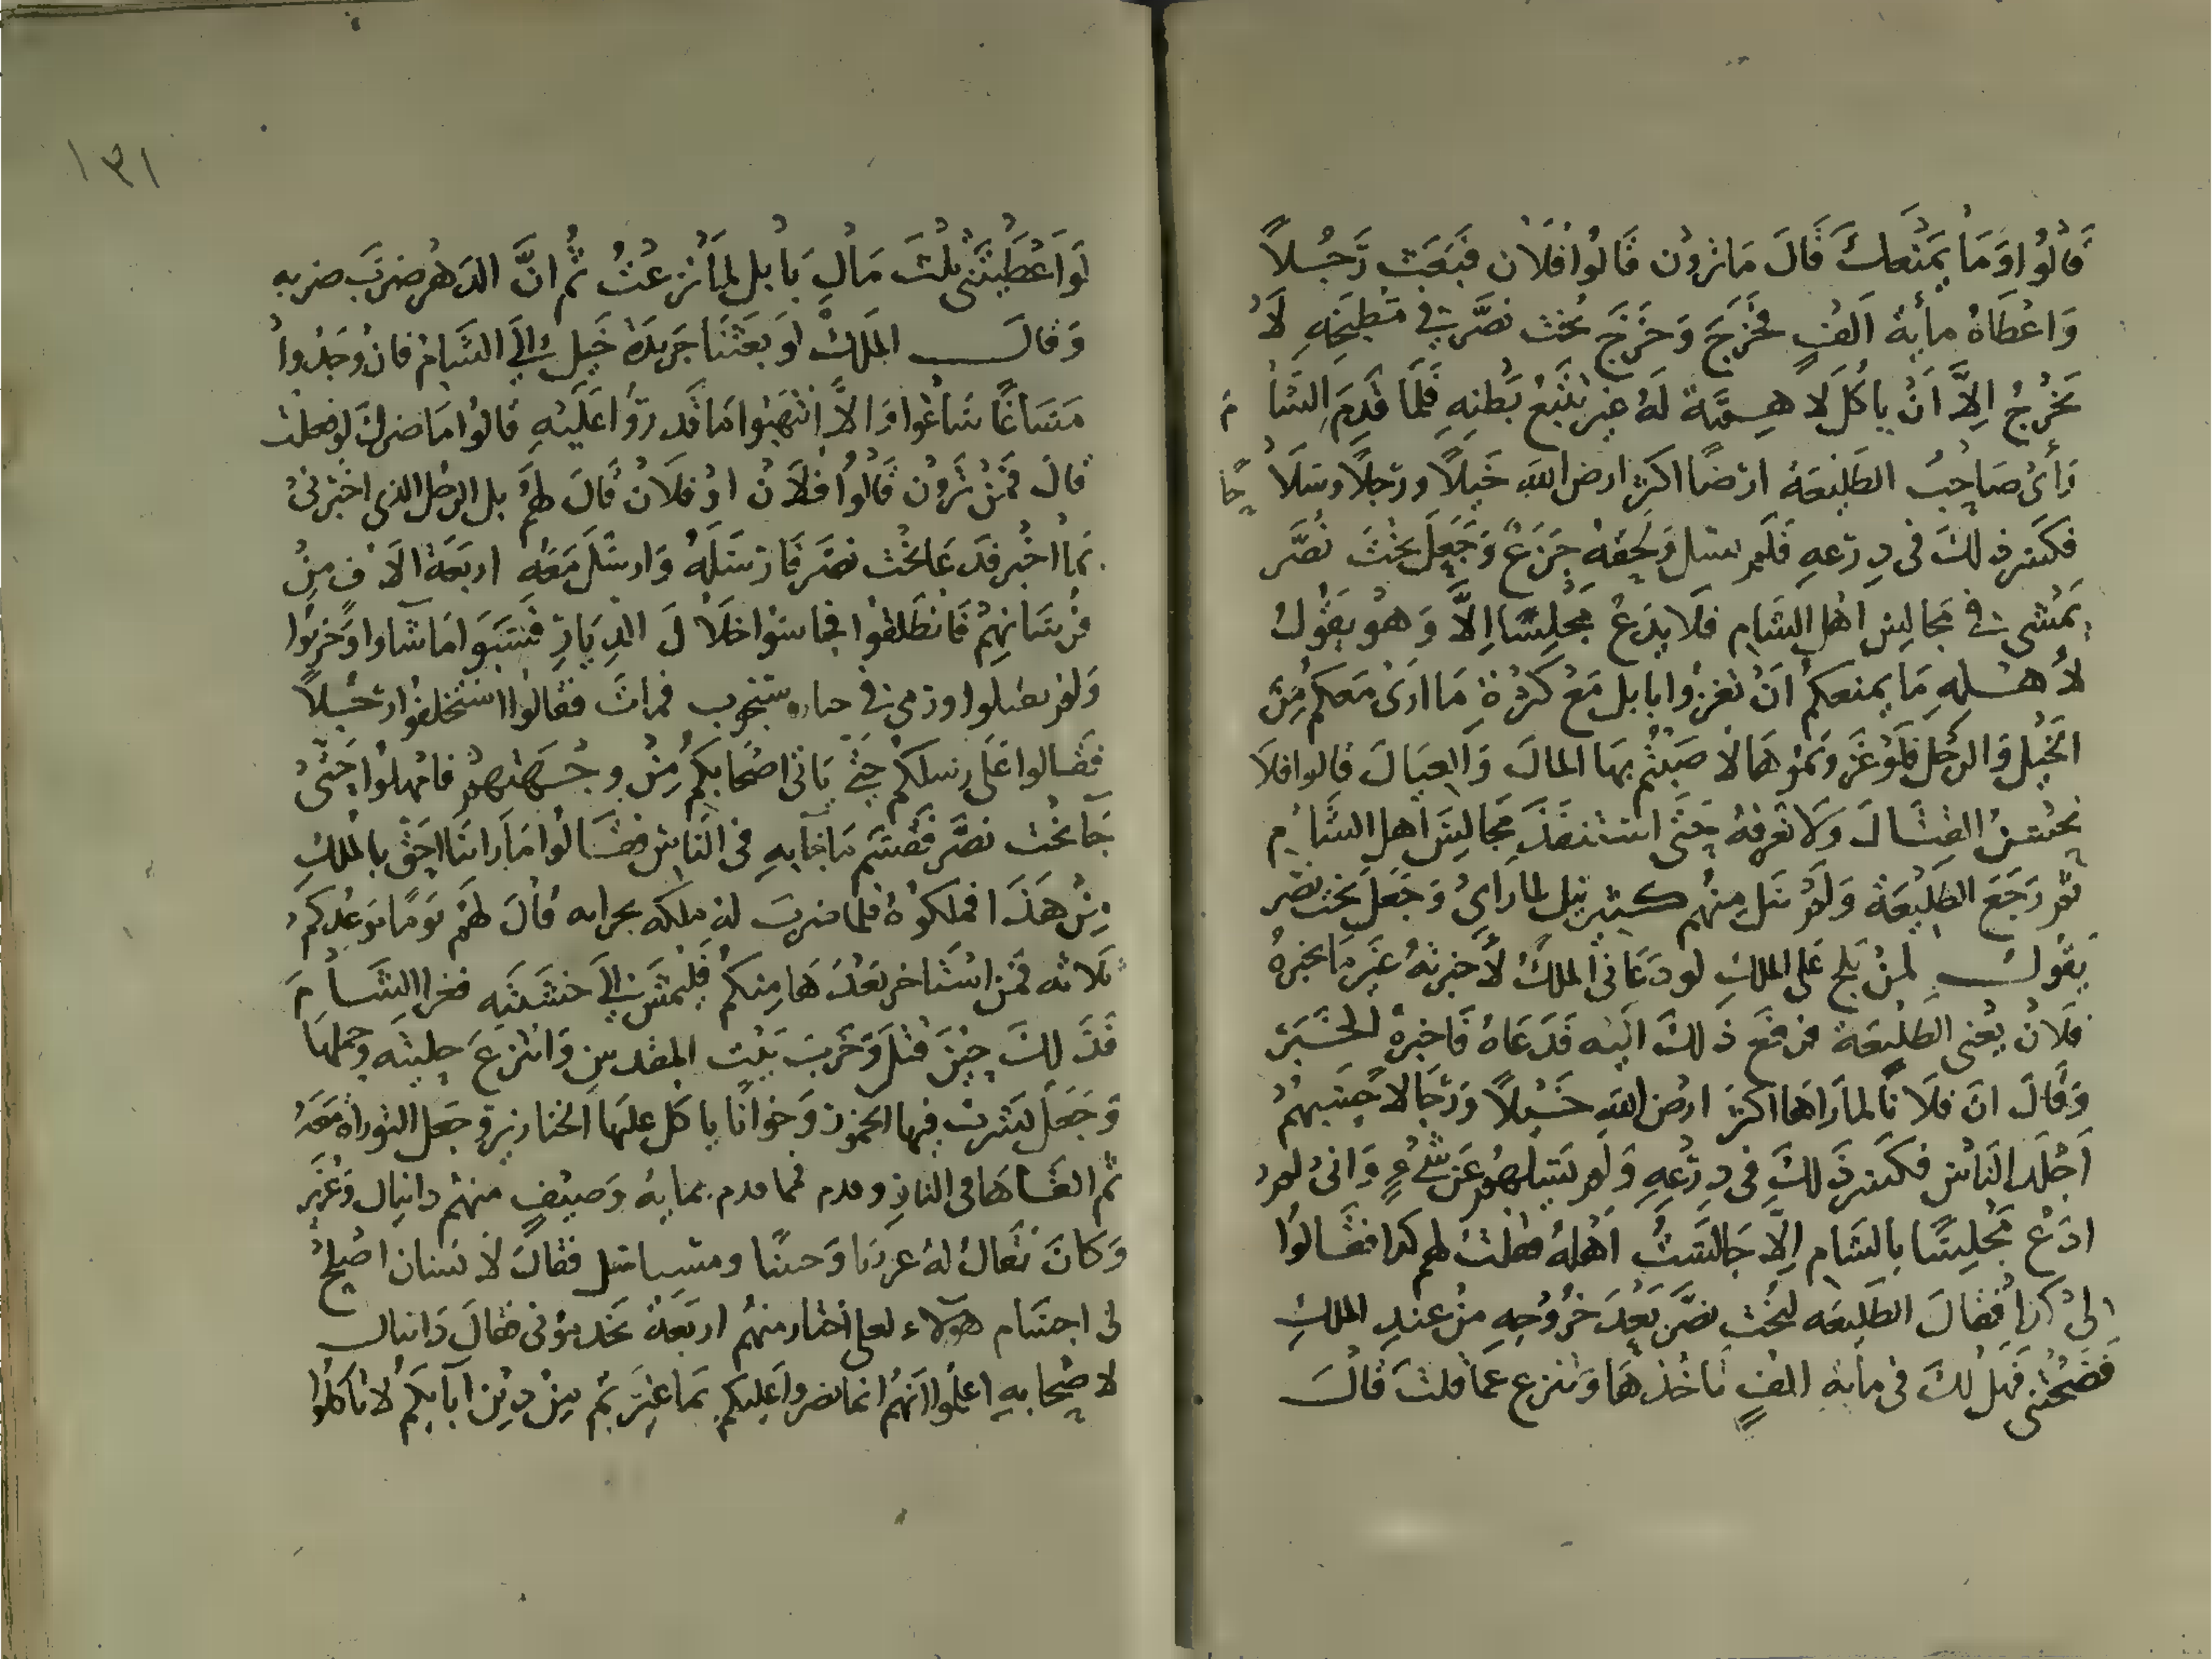 قَالُوا وَمَا يَمْنَعك قَالَ مَا ترون قَالوُا فُلَان فَبَعَث رَجُلاً
وَاعْطَاهُ مأية اَلفٍ فخَرَجَ وَخَرَجَ بخت نصَّر في مَطبَخِهِ لَا
يخرُجُ اِلاَّ اَنْ ياكلَ لا هِمَّة لَهُ غير شبَع بَطنِهِ فَلمَّا قَدِمَ الِشَام
رَأىَ صَاحِبُ الطَلِيعَة ارَضًا اكثر ارض الله خَيلاً ورَجلاً وسَلَاحًا
فكسر ذلكَ فى دِرعهِ فَلَم يسل وَلحِقهُ جَزَعٌ وَجَعَلَ بختَ نصَّر
يَمشى في مجَالِسِ اهْل الشَامِ فَلا يدَعُ مجْلِسًا اِلاَّ وَهُو يَقوُلُ
لأهْلهِ مَا يمنعكم اَنْ تغزُوا بابل مَعْ كثرة مَا ارَىَ مَعكم مِنَ
الخيل وَالرَجْل فَلوَ غَزوتموُهَا لَاصَبْتُم بهَا المالَ وَالعِيَالَ قالوا فلا
نحُسنُ القِتَالَ وَلا نعَرفهُ حَتَّى استنفذَ مجَالِسَ اهلِ الشَام
ثم رَجَعَ الطَلِيعَة وَلَم يسَل منهُم كَثير نيل لمِا رَاىَ وَجَعَلَ بخت نصر
يَقوُل لمِنْ يلج عَلى الملكِ لو دَعَانىِ الملكُ لأَخبرتُهُ غَيَر مَا يخبرُهُ
فُلَانُ يعْنى الطليعَة فرفَعَ ذَلكَ الَيْه فَدَعَاهُ فَاخبرهُ الخَبَرَ
وَقَالَ انَ فلَانًا لما رَاهَا اكثرَ ارضِ اللهِ خَيْلاً وَرجَالا حَسِبَهُمْ
اَجْلَد النَاسْ فكسَر ذَلكَ فى دِرعِهِ وَلَم يَسَلهُم عَنْ شَىءٍ وَانىِّ لم
ادَعْ مجَلِسًا بالشَامِ اِلاَّ جَالسَتُ اَهْلهُ فقلت لهم كذا فقَالوُا
لىِ كذا فقالَ الطَلِيعَه لبخت نصَّر بَعْدَ خُرُوجهِ مِنْ عندِ الملكِ
فضَحْتنى فَهَل لكَ فى مأية الفٍ تاخُذهَا وَتنزع عَمّا قلتَ قالَ
١٣١
لَوَ اَعْطَيْتَنىِ بيْتَ مَالِ بَابل لمَا نزعْتُ ثُمَّ انَّ الدَهر ضَربَ ضربه
وَقالَ الملَكُ لَو بَعَثْنَا جَريدَة خَيل إلىَ الشَام فان وَجَدوُا
مَسَاغًا سَاغُوا وَاِلاَّ انتَهبَوُا مَا قَدرُوا عَلَيهِ قالوُا مَا ضَرك لو فعلت
قالَ فمَن تَروُن قَالوُا فلَانْ اوْ فلَانْ قالَ لهم بل الرَجل الذى اخبرنىِ
بما اخبر فدَعَا بخت نصَّر فَارسَلهُ وَارسَلَ مَعَهُ اربَعَة الَاف مِنْ
فرُسَانِهِمُ فَانطَلقوا فجاسُوا خلَالَ الديَارِ فَسَبَوا مَا شَاوا وَخرَبُوا
وَلم يقتلوا ورُمىَ فى سنجريب فماتَ فقالوا استخلفوا رَجُلاً
فَقالوا عَلى رِسلكم حَتى يَاتى اصْحَابكم مِنْ وجْهَتهم فامهلوُا حَتىَّ
جَا بخت نصَّر فَقَسَم مَا جَابهِ فى النَاسِ فقَالوُا مَا رَايْنَا احَقّ بالملكِ
مِنْ هَذَا فملكوُهُ فلمَا ضربَ له ملكه بجرانه قالَ لهَم يوَمًا موَعُدكم
ثَلاثه فمَنِ استَاخر بَعْدَهَا مِنكُم فَليَمْشِ اِلىَ خشبَتِهِ فغزا الشَامَ
فَذَلكَ حِيْنَ قتَلَ وَخَربَ بَيت المقدسِ وَانتزَعَ حِليتَه وحملها
وَجَعَل يشربُ فيها الخموُر وَخوانًا ياكل عليْهَا الخنازير وَجَعَل التورَاة مَعَهُ
ثم القَاهَا فى النَارِ وقدم فيما قدم بمايهُ وَصيفٍ منهُم دانيال وَعُزير
وَكانَ يُقالُ لهُ عزريا وَحننيا ومشايل فقالَ لَانسَان اصْلحْ
لى اجسَام هؤلاء لعلى اختار منهُم اربعَة يخدموُنى فقالَ دَانيال
لَاصْحابهِ اعلمُوا اَنهُم انما نصرُوا عَليكم بمَا غيَّرتم مِنْ دِيْن ابَايكمُ لا تَاكلوُا